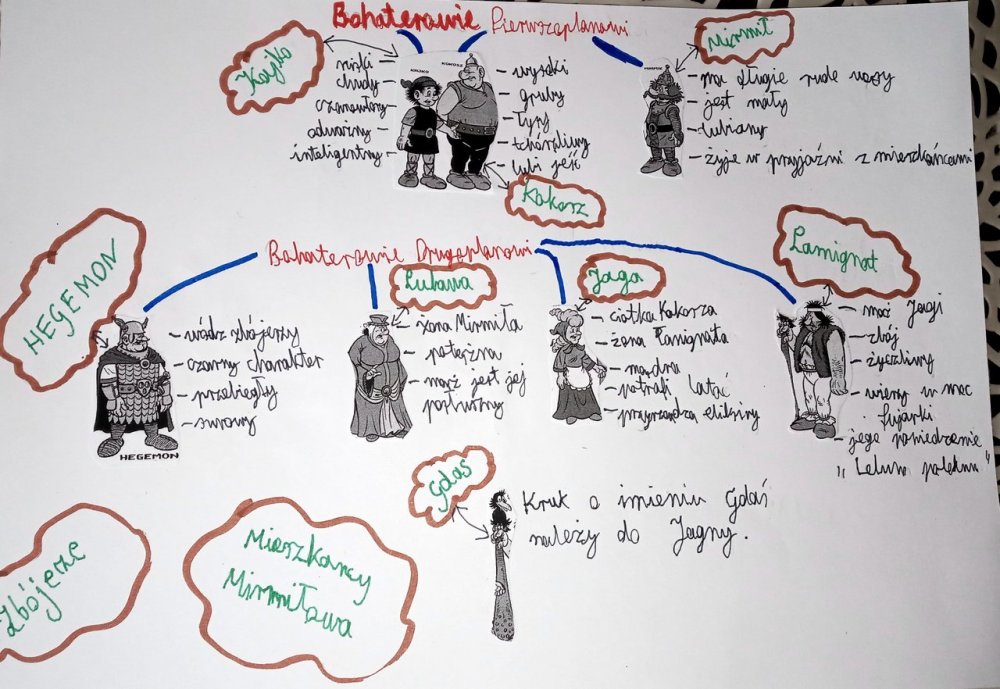 Bohaterowie Pierwszoplanowi
Kajko
niski
chudy
czarnowłosy
odważny
inteligentny
wysoki
gruby
łysy
tchórzliwy
lubi jeść
Kokosz
Mirmił
ma długie rude wąsy
jest mały
lubiany
żyje w przyjaźni z mieszkańcami
Bohaterowie Drugoplanowi
HEGEMON
wódz zbójerzy
czarny charakter
przebiegły
surowy
HEGEMON
Lubawa
żona Mirmiła
potężna
mąż jest jej
posłuszny
Jaga
ciotka Kokosza
żona Łamignata
mądra
potrafi latać
przyrządza eliksiry
Łamignat
mąż Jagi
zbój
życzliwy
wierzy w moc
fujarki
jego powiedzenie
"Lelum polelum"
Gdaś
Kruk o imieniu Gdaś
należy do Jagny.
Zbójerze
Mieszkańcy
Mirmiłowa